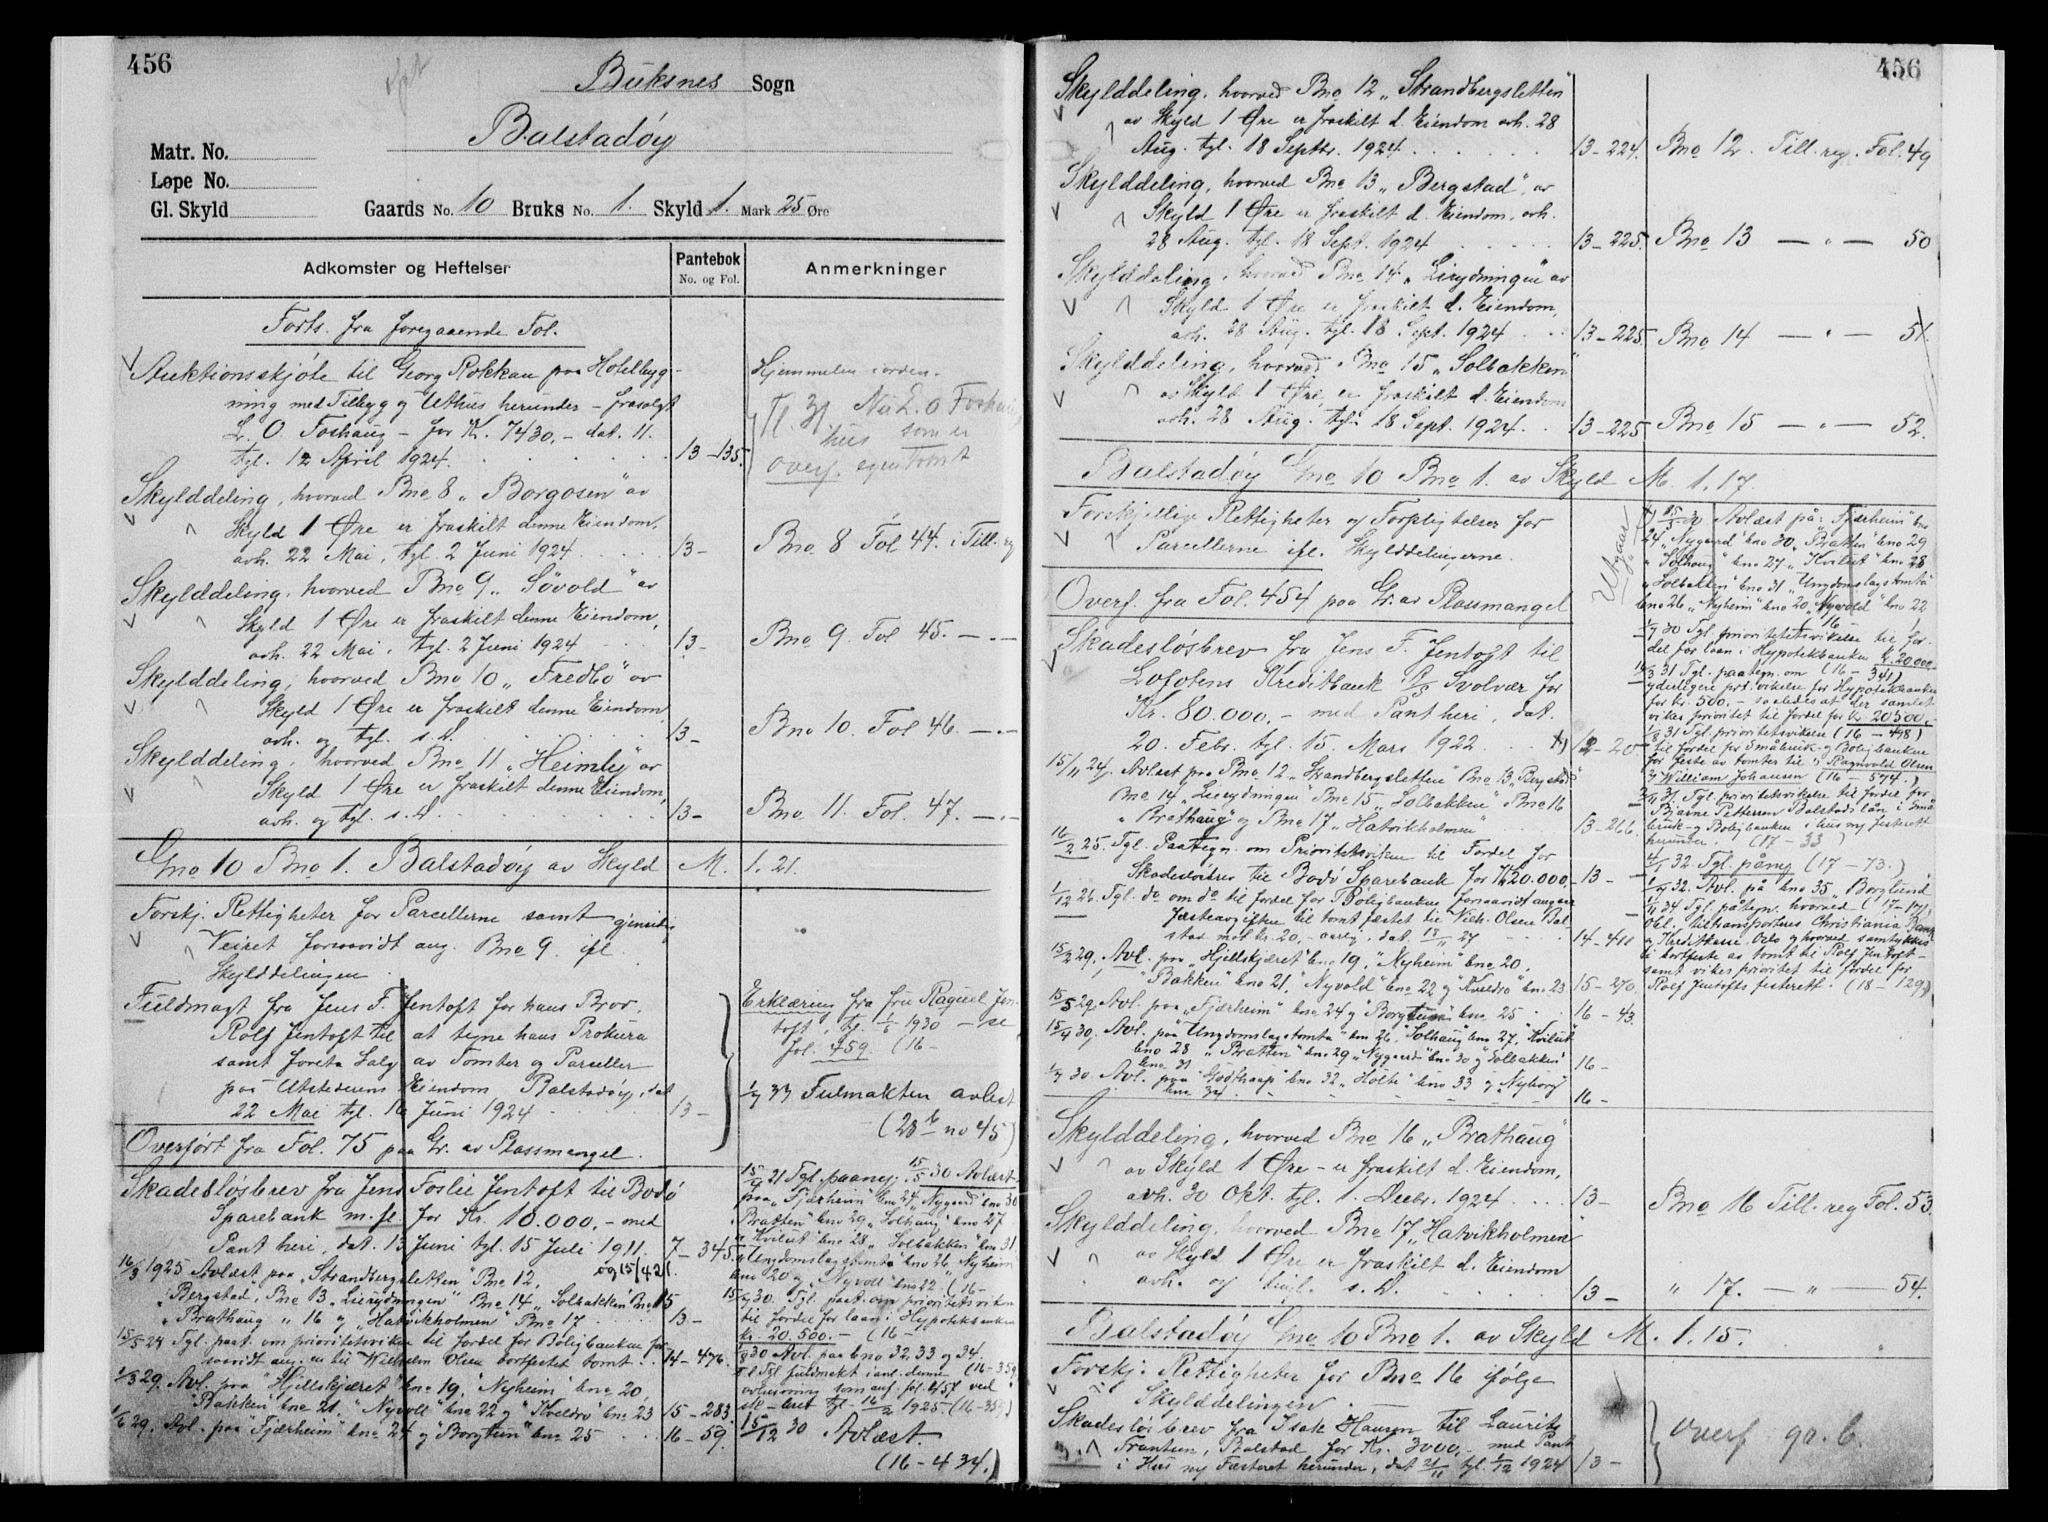 456
Buksnes Sogn
Balstadøy
Matr. No.
Løpe No.
Gl. Skyld
Gaards No. 10 Bruks No. 1. Skyld 1. Mark 25 Øre
Adkomster og Heftelser
Pantebok
No. og Fol.
Anmerkninger
Forts. fra foregaaende Fol.
Auktionsskjøte til Georg Rokkan paa Hotelbyg-
ning med Tilbygg og Uthus herunder – frasolgt
L. O. Foshaug – for Kr. 7430,- dat. 11.
tgl. 12 April 1924. 13–135.
Hjemmelen i orden.
Nu L. O Foshaug
hus som er
overf. egen Tomt
Skylddeling, hvorved Bno 8 „Borgosen" av
Skyld 1 Øre er fraskilt denne Eiendom,
avh. 22 Mai, tgl. 2 Juni 1924 13– Bno 8 Fol 44. i Till. reg
Skylddeling, hvorved Bno 9 „Søvold" av
Skyld 1 Øre er fraskilt denne Eiendom,
avh. 22 Mai, tgl. 2 Juni 1924 13– Bno 9. Fol 45. –"–
Skylddeling, hvorved Bno 10 „Fredbo" av
Skyld 1 Øre er fraskilt denne Eiendom,
avh. og tgl. s. D. 13– Bno 10. Fol 46. –"–
Skylddeling, hvorved Bno 11 „Heimly" av
Skyld 1 Øre er fraskilt denne Eiendom,
avh. og tgl. s. D. 13– Bno 11. Fol. 47. –"–
Gno 10 Bno 1. Balstadøy av Skyld M. 1.21.
Forskj. Rettigheter for Parcellerne samt gjensidig
Veiret forsaavidt ang. Bno 9 ifl.
Skylddelingen
Fuldmagt fra Jens F. Jentoft for hans Bror,
Rolf Jentoft til at tegne hans Prokura
samt foreta Salg av Tomter og Parceller
paa Utstederens Eiendom Balstadøy, dat
22 Mai tgl. 16 Juni 1924 13–
Erklæring fra fru Raquel Jen-
toft, tgl. 1930 – se
fol. 459. (16–
33 Fulmakten avlest
(28 b no 45)
Overført fra Fol. 75 paa Gr. av Plassmangel.
Skadesløsbrev fra Jens Foslie Jentoft til Bodø
Sparebank m. fl for Kr. 10.000,- med
Pant heri, dat. 13 Juni tgl. 15 Juli 1911. 7–345.
16/3 1925 Avlæst paa „Strandbergsletten" Bno 12, og 15/421.
„Bergstad", Bno 13 „Lierydningen" Bno 14 „Solbakken" Bno 15
„Brathaug" 16 og „Hatvikholmen" Bno 17 13–
Tgl. paat. om prioritetsviken til fordel for Boligbanken for-
saavidt ang. en til Wilhelm Olsen bortfestet tomt. 14–476.
29. Avl. paa "Hjellskjæret" bno 19, "Nyheim" bno 20,
"Bakken" bno 21 "Nyvoll" bno 22 og "Kveldro" bno 23 15–283.
29. Avl. paa "Fjærheim" bno 24 og "Borgtun" bno 25 16–59.
21 Tgl. paanej. 15/5 30 Avlæst
paa „Fjærheim" bno 24 „Nygaard" bno 30
„Bratten" bno 29 „Solhaug" bno 27
„Kvilut" bno 28 „Solbakken" bno 31
„Ungdomslagstomta" bno 26 „Nyheim"
bno 20 og „Nyvoll" bno 22 (16–
30. Tgl. paat. om prioritetsviken
til fordel for laan i Hypotekbanken
kr. 20.500.– (16–
30 Avl. paa bno 32, 33 og 34
Tgl fuldmakt i anl. denne (16–359
avlæsning som anf. fol. 457 ved
sk.-brev tgl. 16/2 1925 (16–359)
15/12 30 Avlæst.
(16–434.)
456
Skylddeling, hvorved Bno 12 „Strandbergsletten"
av Skyld 1 Øre er fraskilt d. Eiendom avh. 28
Aug. tgl. 18 Septbr. 1924 13–224. Bno 12. Till. reg. Fol. 49
Skylddeling, hvorved Bno 13 „Bergstad", av
Skyld 1 Øre er fraskilt d. Eiendom, avh.
28 Aug. tgl. 18 Sept. 1924 13–225. Bno 13 –"– 50
Skylddeling, hvorved Bno 14 „Lierydningen" av
Skyld 1 Øre er fraskilt d. Eiendom,
avh. 28 Aug. tgl. 18 Sept. 1924 13–225. Bno 14 –"– 51.
Skylddeling, hvorved Bno 15 „Solbakken"
av Skyld 1 Øre, er fraskilt d. Eiendom
avh. 28 Aug. tgl. 18 Sept. 1924. 13–225 Bno 15 –"– 52.
Balstadøy Gno 10 Bno 1. av Skyld M. 1.17.
Forskjellige Rettigheter og Forpligtelser for
Parcellerne ifl. Skylddelingerne.
Overf. fra Fol. 454 paa Gr. av Plassmangel
Skadesløsbrev fra Jens F. Jentoft til
Lofotens Kreditbank A/S Svolvær for
Kr. 80.000,- med Pant heri, dat.
20. Febr. tgl. 15. Mars 1922 12–20
15/11 24. Avlæst paa Bno 12 „Strandbergsletten" Bno 13 „Bergstad"
Bno 14 „Lierydningen" Bno 15 „Solbakken" Bno 16
„Brathaug" og Bno 17 „Hatvikholmen" 13–266.
16/2 25. Tgl. Paategn. om Prioritetsviken til Fordel for
Skadesløsbrev til Bodø Sparebank for Kr 20.000,- 13–
1/12 26. Tgl. do om do til fordel for Boligbanken forsaavidt angaar
Fæsteavgiften til tomt fæstet til Vilh. Olsen Bal-
stad mot kr. 20,- aarlig, dat. 18/11 27 14–411
29, Avl. paa „Hjellskjæret" bno 19, "Nyheim" bno 20,
"Bakken" bno 21, "Nyvold" bno 22 og "Kveldro" bno 23 15–270.
15/5 29. Avl. paa „Fjærheim" bno 24 og "Borgtun" bno 25 16–43.
30. Avl. paa "Ungdomslagstomta" bno 26. "Solhaug" bno 27, "Kvilut"
bno 28 „Bratten" bno 29 „Nygaard" bno 30 og „Solbakken"
bno 31 16–
30 Avl. paa "Godthaap" bno 32 „Holte" bno 33 og „Nyborg"
bno 34 16–
Utgaar
Avlæst på: „Fjærheim" bno
24 „Nygaard" bno 30 „Bratten" bno 29
„Solhaug" bno 27 „Kvilut" bno 28
„Solbakken" bno 31 „Ungdomslagstomta"
bno 26 „Nyheim" bno 20 „Nyvold" bno 22
30 Tgl. prioritetsvikelse til for-
del for laan i Hypotekbanken kr. 20.000,-
31 Tgl. paategn. om (16–341)
yderligere prt. vikelse for Hypotekbanken
for kr. 500.– saaledes at der samlet
vikes prioritet til fordel for kr. 20500.-
31 Tgl. prioritetsviken (16–498)
til fordel for Småbruk og Boligbanken
for feste av tomter til 1) Ragnvald Olsen
2) William Johansen (16–574.)
31 Tgl. prioritetsvikelse til fordel for
Bjarne Pettersen Balstads lån i Små
bruk- og Boligbanken i hus og festerett
herunder. (17–33)
32 Tgl. påny (17–73.)
32. Avl. på bno 35 „Borglund
34 Tgl. påtegn. hvorved (17–171,
obl. tiltransporteres Christiania Bank
og Kreditkasse Oslo og hvorved samtykkes
i bortfeste av tomt til Rolf Jentoft –
samt vikes prioritet til fordel for
Rolf Jentofts festerett. (18–129)
Skylddeling, hvorved Bno 16 „Brathaug"
av Skyld 1 Øre – er fraskilt d. Eiendom,
avh. 30 Okt. tgl. 1. Decbr. 1924 13– Bno 16 Till. reg Fol. 53.
Skylddeling, hvorved Bno 17 „Hatvikholmen"
av Skyld 1 Øre er fraskilt d. Eiendom
avh. og tingl. s. D. 13– " 17. –"– 54.
Balstadøy Gno 10 Bno 1. av Skyld M. 1.15.
Forskj. Rettigheter for Bno 16 ifølge
Skylddelingen
Skadesløsbrev fra Isak Hansen til Laurits
Frantsen, Balstad for Kr. 3000,- med Pant
i Hus og Fæsteret herunder, dat 21/11 tgl. 1/12 1924 13–
overf 90. b.